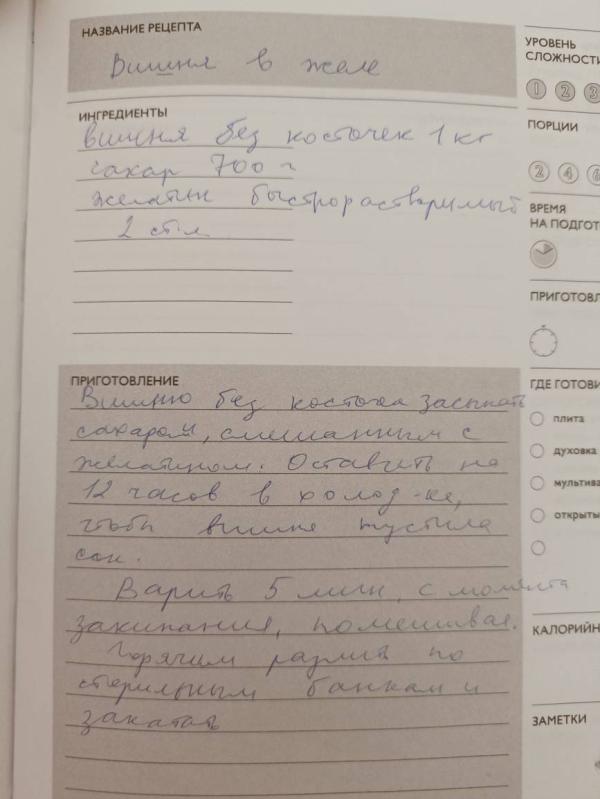 НАЗВАНИЕ РЕЦЕПТА
Вишня в желе
ИНГРЕДИЕНТЫ
вишня без косточек 1 кг
сахар 700 г
желатин быстрорастворимый
2 ст.л.
ПРИГОТОВЛЕНИЕ
Вишню без косточка засыпать
сахаром, смешанным с
желатином. Оставить на
12 часов в холод-ке,
чтобы вишня пустила
сок.
Варить 5 мин, с момента
закипания, помешивая.
Горячим разлить по
стерильным банкам и
закатать
УРОВЕНЬ
СЛОЖНОСТИ
1 2 3
ПОРЦИИ
2 4 6
ВРЕМЯ
НА ПОДГОТО
ПРИГОТОВЛ
ГДЕ ГОТОВИ
плита
духовка
мультива
открыты
КАЛОРИЙН
ЗАМЕТКИ